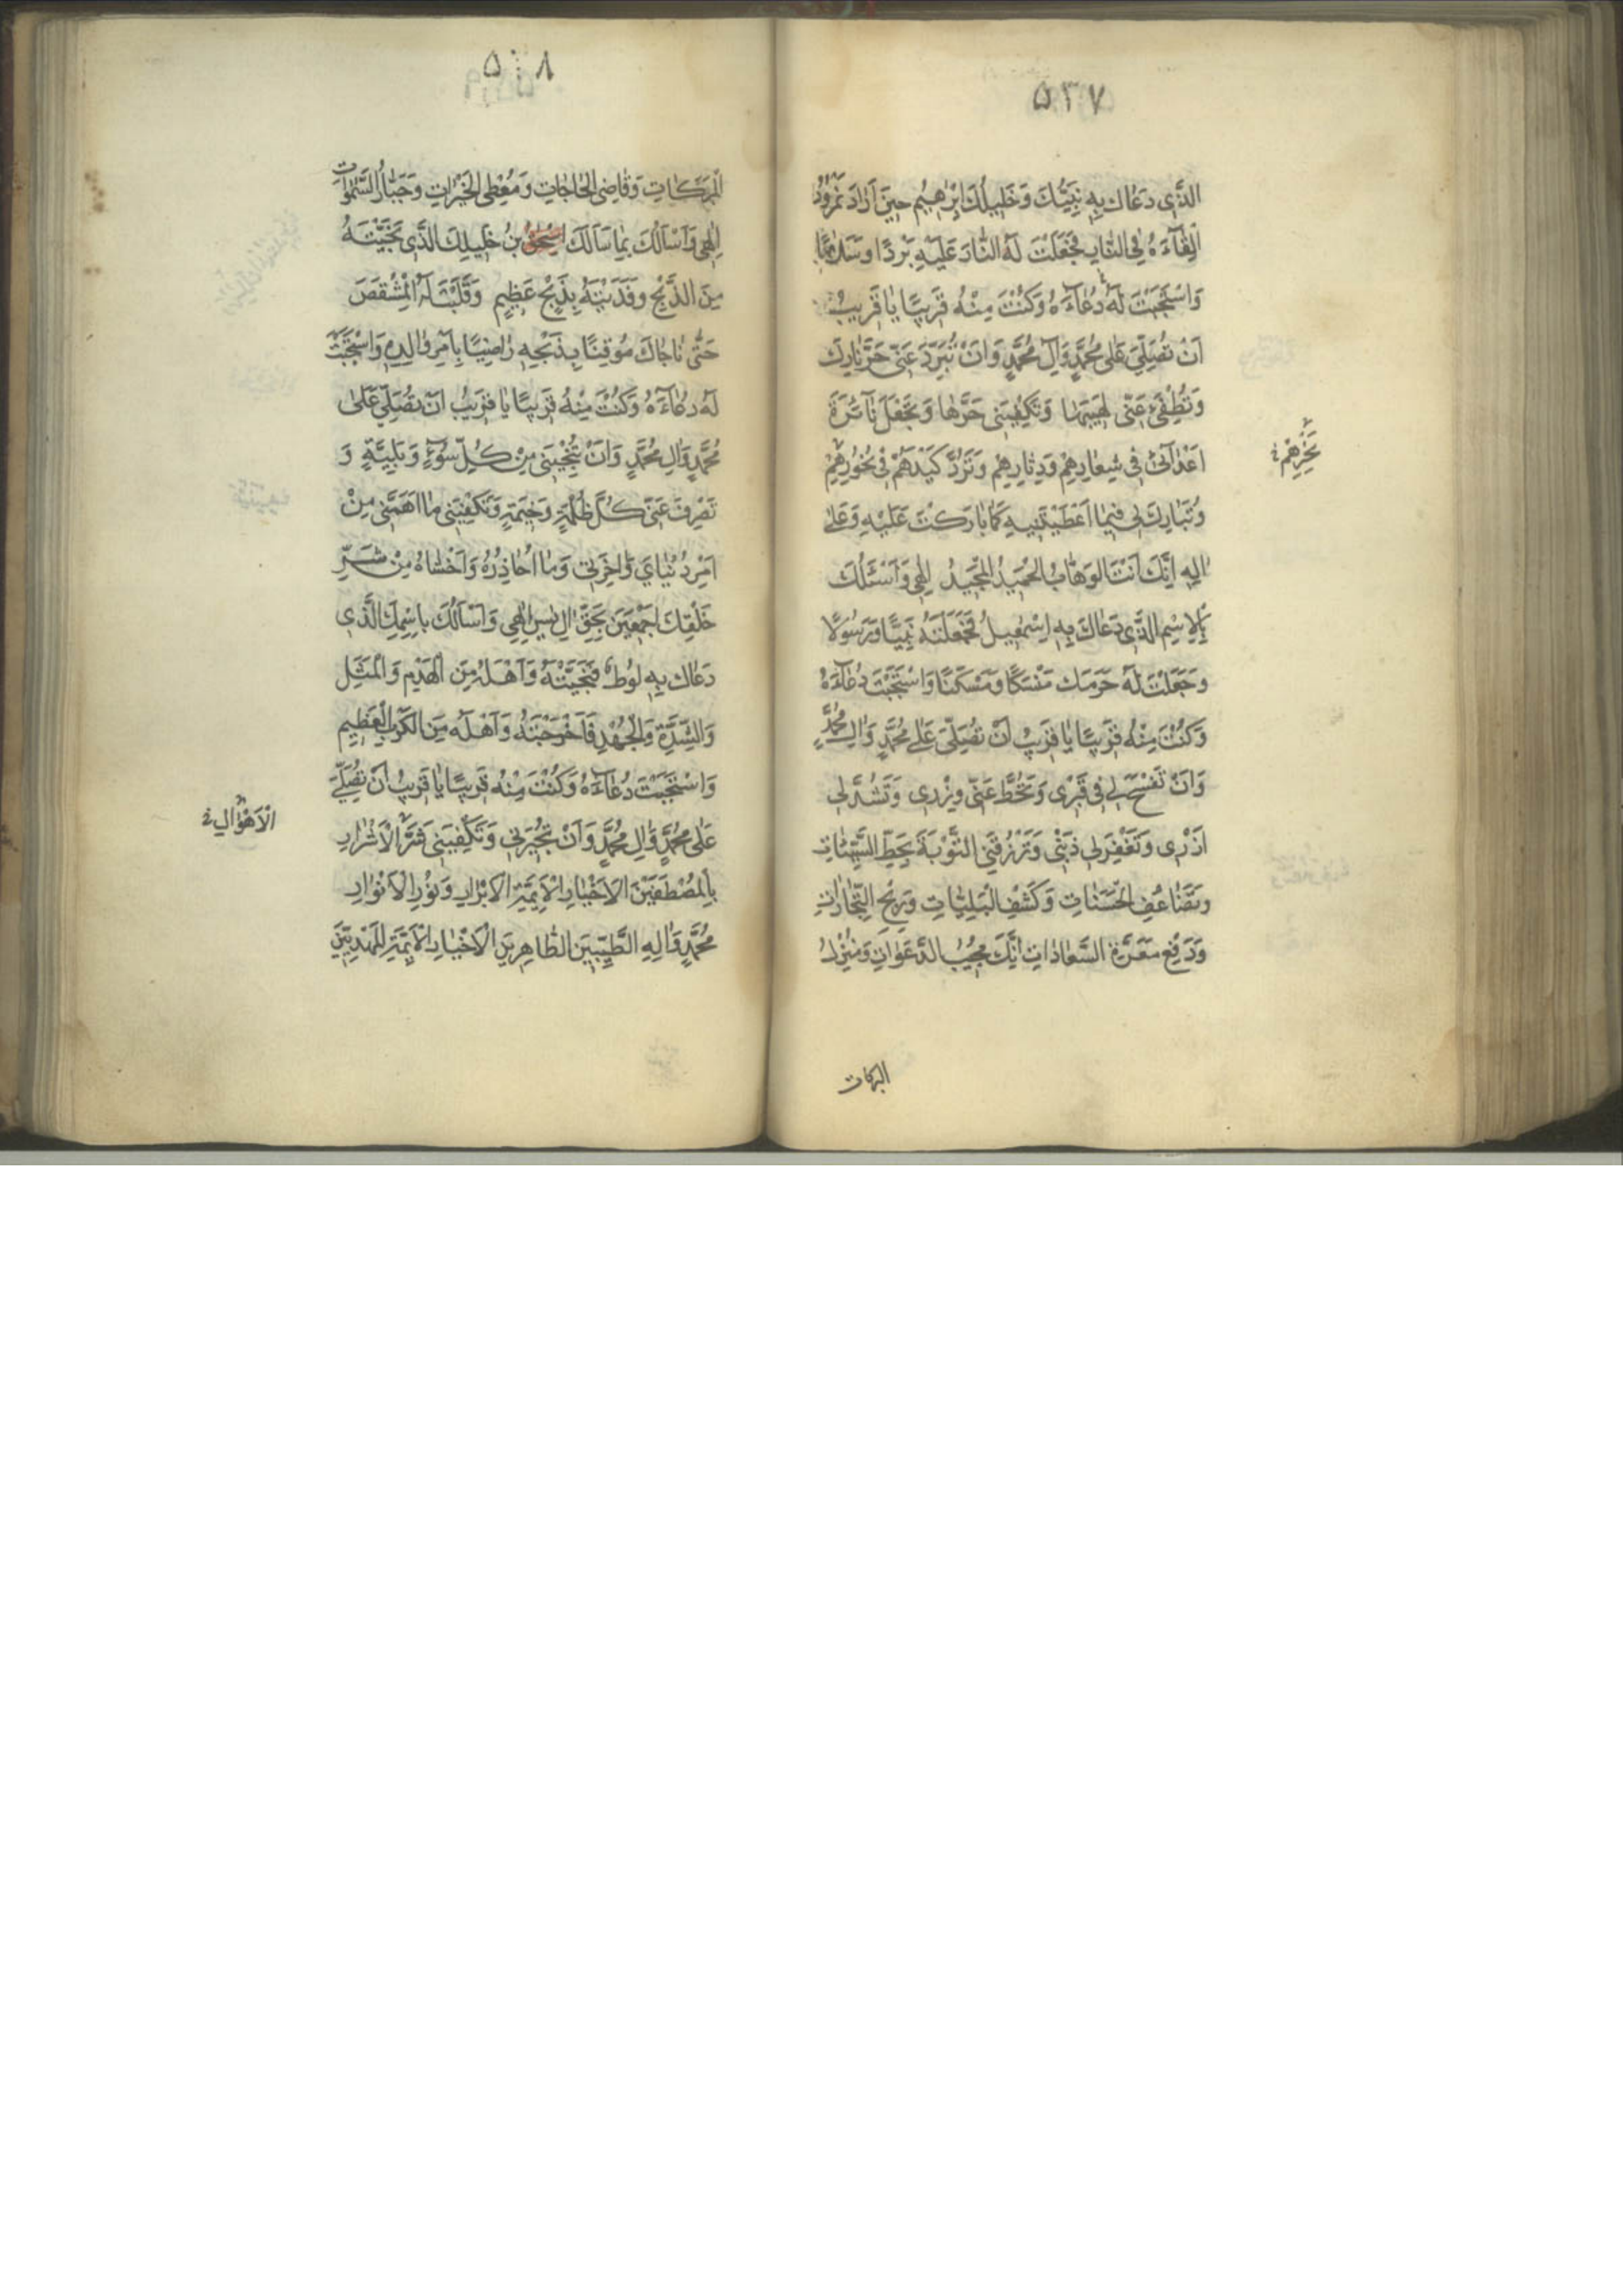 ۵۳۷
الَّذِي دَعَاكَ بِهِ نَبِيُّكَ وَخَلِيلُكَ اِبْرٰهِيمُ حِينَ اَرَادَ نَمْرُودُ
اِلْقَآءَهُ فِي النَّارِ فَجَعَلْتَ لَهُ النَّارَ عَلَيْهِ بَرْدًا وَسَلَامًا
وَاسْتَجَبْتَ لَهُ دُعَآءَهُ وَكُنْتَ مِنْهُ قَرِيبًا يَا قَرِيبُ
اَنْ تُصَلِّيَ عَلٰى مُحَمَّدٍ وَآلِ مُحَمَّدٍ وَاَنْ تُبَرِّدَ عَنِّي حَرَّ نَارِكَ
وَتُطْفِئَ عَنِّي لَهِيبَهَا وَتَكْفِيَنِي حَرَّهَا وَتَجْعَلَ نَآئِرَةَ
اَعْدَآئِي فِي شِعَارِهِمْ وَدِثَارِهِمْ وَتَرُدَّ كَيْدَهُمْ فِي نُحُورِهِمْ
نَحْرِهِمْ خ
وَتُبَارِكَ لِي فِيمَا اَعْطَيْتَنِيهِ كَمَا بَارَكْتَ عَلَيْهِ وَعَلٰى
اٰلِهِ اِنَّكَ اَنْتَ الْوَهَّابُ الْحَمِيدُ الْمَجِيدُ اِلٰهِي وَاَسْئَلُكَ
بِالْاِسْمِ الَّذِي دَعَاكَ بِهِ اِسْمٰعِيلُ فَجَعَلْتَهُ نَبِيًّا وَرَسُولًا
وَجَعَلْتَ لَهُ حَرَمَكَ مَنْسَكًا وَمَسْكَنًا وَاسْتَجَبْتَ دُعَآءَهُ
وَكُنْتَ مِنْهُ قَرِيبًا يَا قَرِيبُ اَنْ تُصَلِّيَ عَلٰى مُحَمَّدٍ وَاٰلِ مُحَمَّدٍ
وَاَنْ تَفْسَحَ لِي فِي قَبْرِي وَتَحُطَّ عَنِّي وِزْرِي وَتَشُدَّ لِي
اَزْرِي وَتَغْفِرَ لِي ذَنْبِي وَتَرْزُقَنِي التَّوْبَةَ بِحَطِّ السَّيِّئَاتِ
وَتَضَاعُفِ الْحَسَنَاتِ وَكَشْفِ الْبَلِيَّاتِ وَرِبْحِ التِّجَارَاتِ
وَدَفْعِ مَعَرَّةِ السَّعَايَاتِ اِنَّكَ مُجِيبُ الدَّعَوَاتِ وَمُنْزِلُ
البركات
۵۳۸
الْبَرَكَاتِ وَقَاضِي الْحَاجَاتِ وَمُعْطِي الْخَيْرَاتِ وَجَبَّارُ السَّمٰوَاتِ
اِلٰهِي وَاَسْاَلُكَ بِمَا سَاَلَكَ اِسْحٰقُ بْنُ خَلِيلِكَ الَّذِي نَجَّيْتَهُ
مِنَ الذَّبْحِ وَفَدَيْتَهُ بِذِبْحٍ عَظِيمٍ وَقَلَّبْتَ لَهُ الْمِشْقَصَ
حَتّٰى نَاجَاكَ مُوقِنًا بِذَبْحِهِ رَاضِيًا بِاَمْرِ وَالِدِهِ وَاسْتَجَبْتَ
لَهُ دُعَآءَهُ وَكُنْتَ مِنْهُ قَرِيبًا يَا قَرِيبُ اَنْ تُصَلِّيَ عَلٰى
مُحَمَّدٍ وَاٰلِ مُحَمَّدٍ وَاَنْ تُنْجِيَنِي مِنْ كُلِّ سُوٓءٍ وَبَلِيَّةٍ وَ
تَصْرِفَ عَنِّي كُلَّ ظُلْمَةٍ وَخِيمَةٍ وَتَكْفِيَنِي مَا اَهَمَّنِي مِنْ
اَمْرِ دُنْيَايَ وَاٰخِرَتِي وَمَا اُحَاذِرُهُ وَاَخْشَاهُ مِنْ شَرِّ
خَلْقِكَ اَجْمَعِينَ بِحَقِّ اٰلِ يٰسٓ اِلٰهِي وَاَسْاَلُكَ بِاسْمِكَ الَّذِي
دَعَاكَ بِهِ لُوطٌ فَنَجَّيْتَهُ وَاَهْلَهُ مِنَ الْهَدْمِ وَالْمَثَلِ
وَالشِّدَّةِ وَالْجُهْدِ فَاَخْرَجْتَهُ وَاَهْلَهُ مِنَ الْكَرْبِ الْعَظِيمِ
وَاسْتَجَبْتَ دُعَآءَهُ وَكُنْتَ مِنْهُ قَرِيبًا يَا قَرِيبُ اَنْ تُصَلِّيَ
عَلٰى مُحَمَّدٍ وَاٰلِ مُحَمَّدٍ وَاَنْ تُجِيرَنِي وَتَكْفِيَنِي شَرَّ الْاَشْرَارِ
الْاَهْوَالِ خ
بِالْمُصْطَفَيْنَ الْاَخْيَارِ الْاَئِمَّةِ الْاَبْرَارِ وَنُورِ الْاَنْوَارِ
مُحَمَّدٍ وَاٰلِهِ الطَّيِّبِينَ الطَّاهِرِينَ الْاَخْيَارِ الْاَئِمَّةِ الْمَهْدِيِّينَ